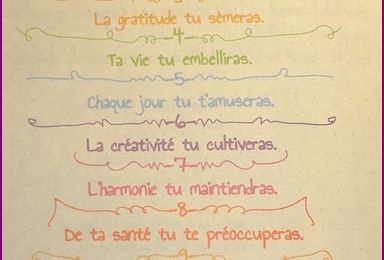 La gratitude tu sèmeras.
4
Ta vie tu embelliras.
5
Chaque jour tu t'amuseras.
6
La créativité tu cultiveras.
7
L'harmonie tu maintiendras.
8
De ta santé tu te préoccuperas.
9